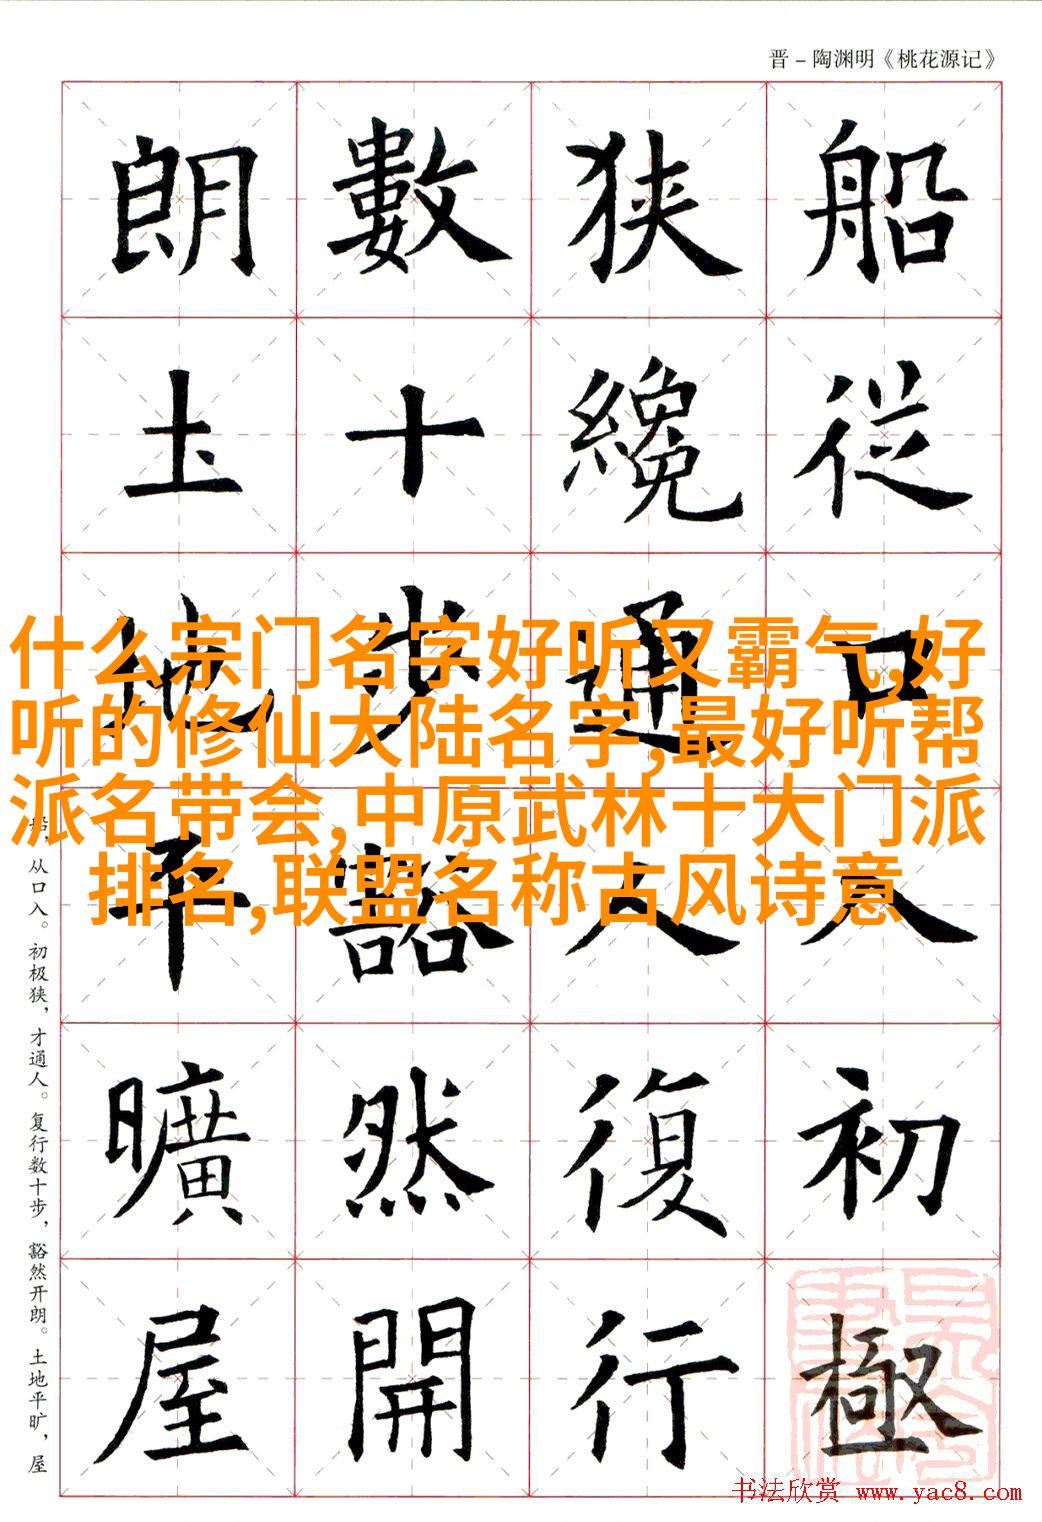 晋－陶渊明《桃花源记》
船從口入初極
狭纔通人復行
數十步豁然開
朗圡地平曠屋
什么宗门名字好听又霸气,好
听的修仙大陆名字,最好听帮
派名带会,中原武林十大门派
排名,联盟名称古风诗意
船，从口入。初极狭，才通人。复行数十步，豁然开朗。土地平旷，屋
书法欣赏 www.yac8.com